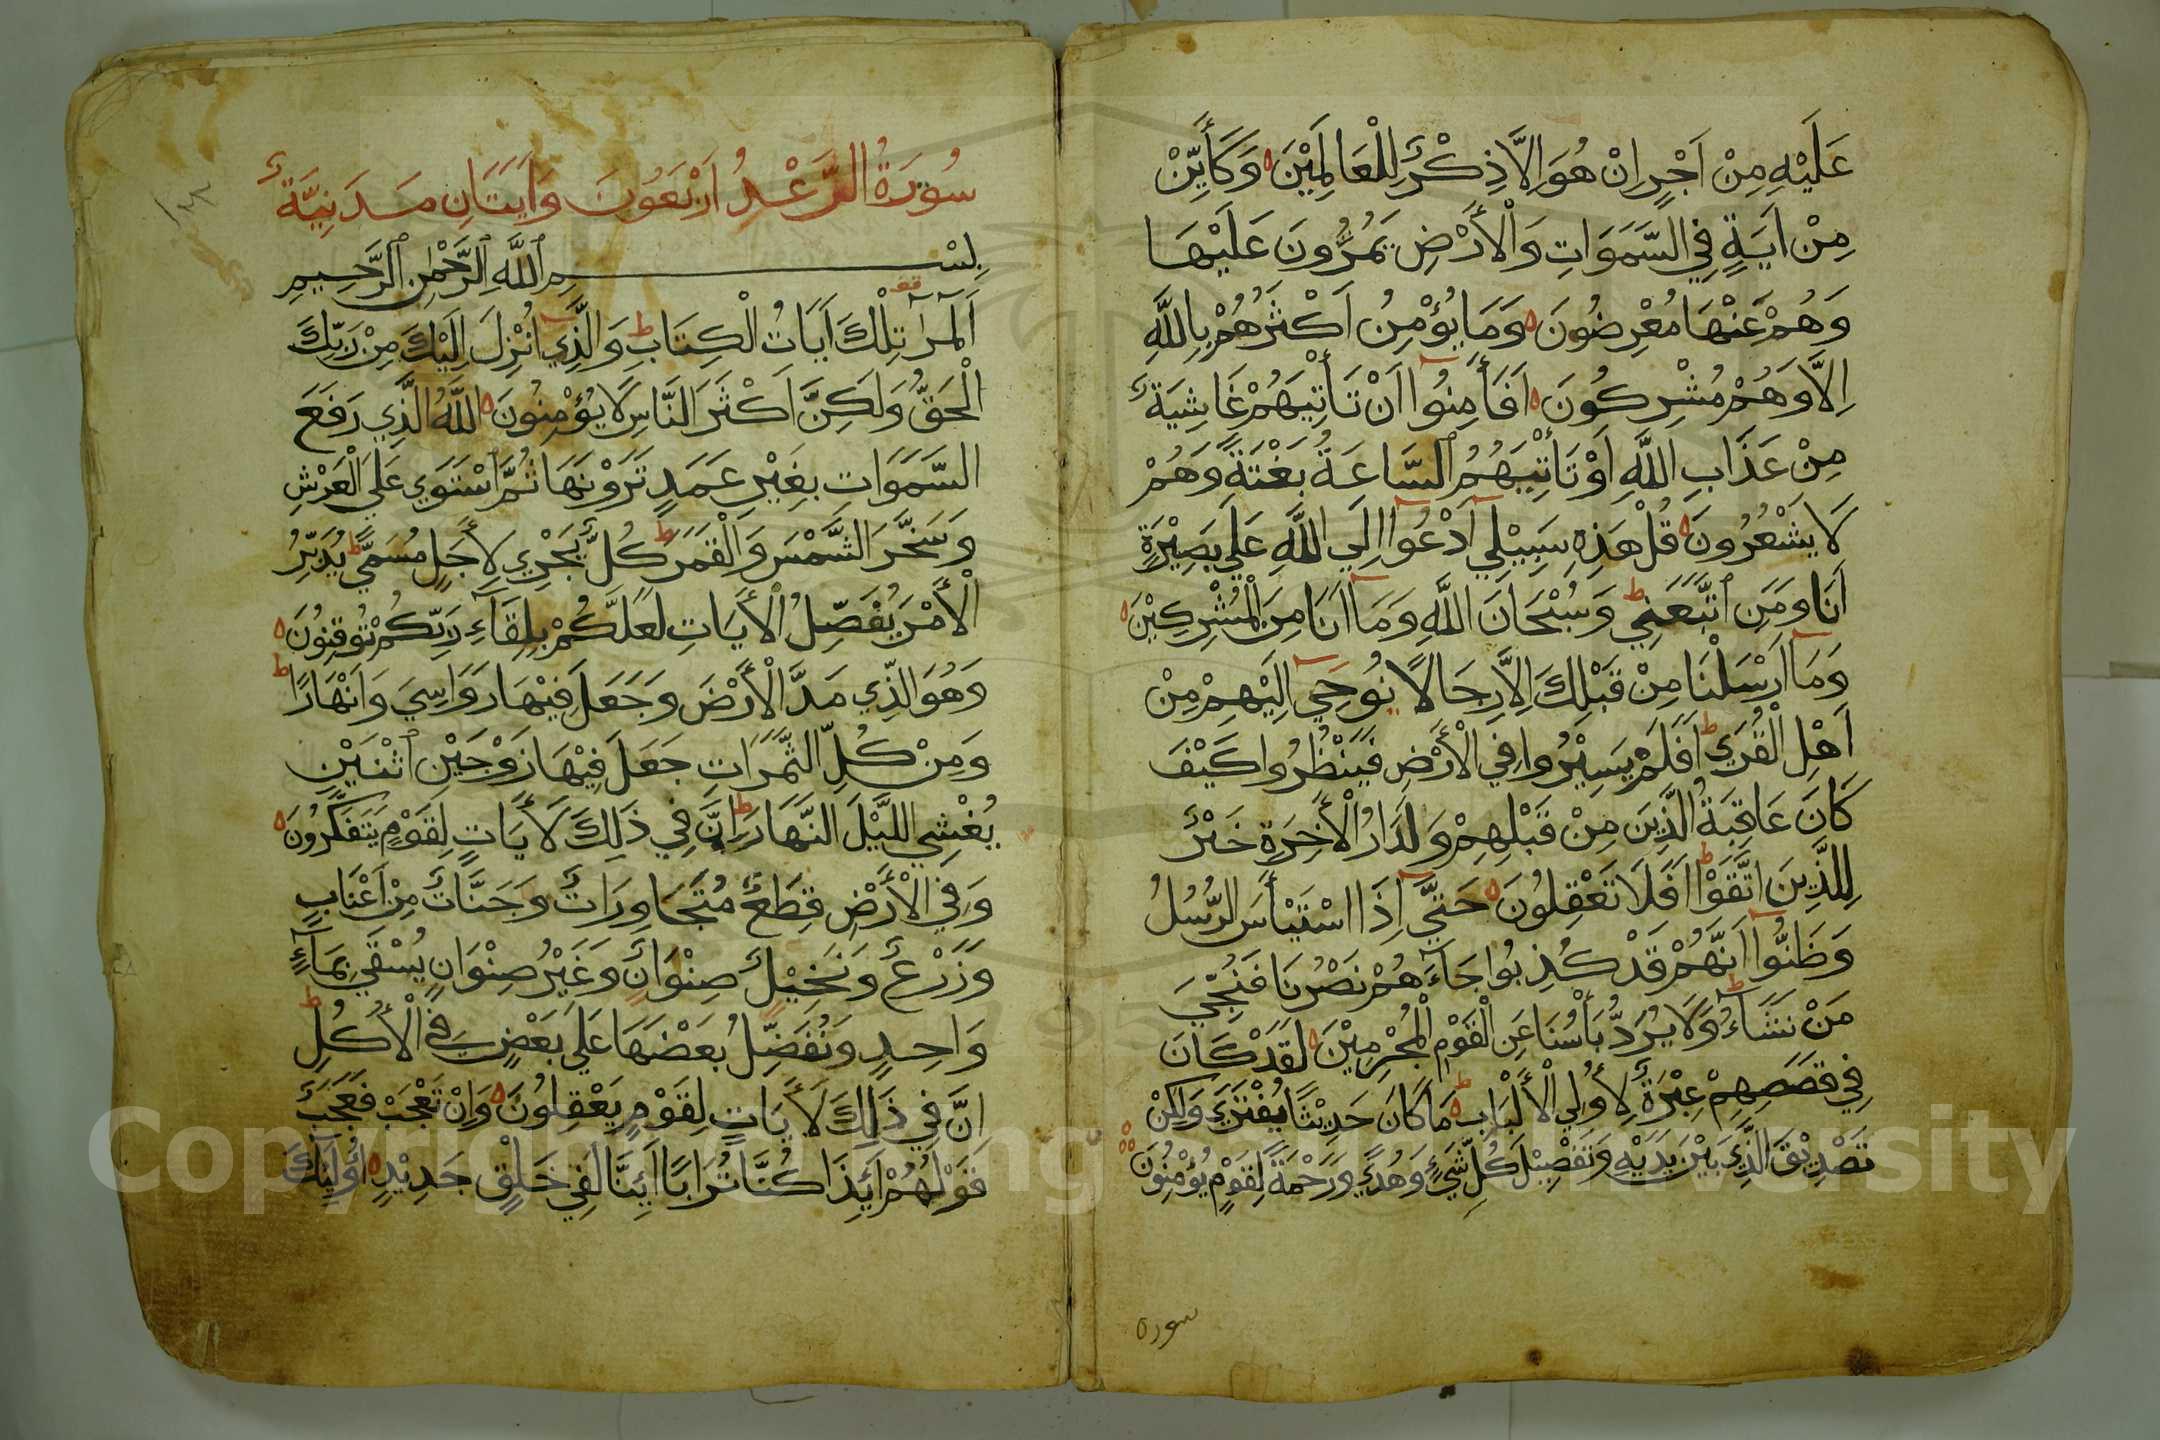 عَلَيْهِ مِنْ اَجْرٍ اِنْ هُوَ اِلَّا ذِكْرٌ لِلْعَالَمِيْنَ ه وَكَأَيِّنْ
مِنْ اٰيَةٍ فِي السَّمَوَاتِ وَالْأَرْضِ يَمُرُّونَ عَلَيْهَا
وَهُمْ عَنْهَا مُعْرِضُونَ ه وَمَا يُؤْمِنُ اَكْثَرُهُمْ بِاللَّهِ
اِلَّا وَهُمْ مُشْرِكُونَ ه اَفَأَمِنُوٓا اَنْ تَأْتِيَهُمْ غَاشِيَةٌ
مِنْ عَذَابِ اللَّهِ اَوْ تَأْتِيَهُمُ ٱلسَّاعَةُ بَغْتَةً وَهُمْ
لَا يَشْعُرُونَ ه قُلْ هَذِهِ سَبِيْلِيٓ اَدْعُوٓا اِلَي اللَّهِ عَلَي بَصِيْرَةٍ
اَنَا وَمَنِ ٱتَّبَعَنِي ط وَسُبْحَانَ اللَّهِ وَمَآ اَنَا مِنَ الْمُشْرِكِيْنَ ه
وَمَآ اَرْسَلْنَا مِنْ قَبْلِكَ اِلَّا رِجَالًا نُوحِيٓ اِلَيْهِمْ مِنْ
اَهْلِ الْقُرَي ط اَفَلَمْ يَسِيْرُوا فِي الْأَرْضِ فَيَنْظُرُوا كَيْفَ
كَانَ عَاقِبَةُ الَّذِينَ مِنْ قَبْلِهِمْ وَلَدَارُ الْأَخِرَةِ خَيْرٌ
لِلَّذِينَ اتَّقَوْا ط اَفَلَا تَعْقِلُونَ ه حَتَّيٓ اِذَا اسْتَيْأَسَ الرُّسُلُ
وَظَنُّوٓا اَنَّهُمْ قَدْ كُذِبُوا جَآءَهُمْ نَصْرُنَا فَنُجِّيَ
مَنْ نَشَآءُ ط وَلَا يُرَدُّ بَأْسُنَا عَنِ الْقَوْمِ الْمُجْرِمِيْنَ ه لَقَدْ كَانَ
فِي قَصَصِهِمْ عِبْرَةٌ لِأُولِي الْأَلْبَابِ ط مَا كَانَ حَدِيْثًا يُفْتَرَي وَلَكِنْ
تَصْدِيْقَ الَّذِي بَيْنَ يَدَيْهِ وَتَفْصِيْلَ كُلِّ شَيْءٍ وَهُدًي وَرَحْمَةً لِقَوْمٍ يُؤْمِنُونَ
سوره
سُورَةُ الرَّعْدُ اَرْبَعُونَ وَاٰيَتَانِ مَدَنِيَّةٌ
بِسْمِ ٱللَّهِ ٱلرَّحْمٰنِ ٱلرَّحِيمِ
الٓمٓرٰ تِلْكَ اٰيَاتُ الْكِتَابِ ط وَالَّذِيٓ اُنْزِلَ اِلَيْكَ مِنْ رَبِّكَ
الْحَقُّ وَلَكِنَّ اَكْثَرَ النَّاسِ لَا يُؤْمِنُونَ ه اللَّهُ الَّذِي رَفَعَ
السَّمَوَاتِ بِغَيْرِ عَمَدٍ تَرَوْنَهَا ثُمَّ ٱسْتَوَي عَلَي الْعَرْشِ
وَسَخَّرَ الشَّمْسَ وَالْقَمَرَ ط كُلٌّ يَجْرِي لِأَجَلٍ مُسَمًّي ط يُدَبِّرُ
الْأَمْرَ يُفَصِّلُ الْأَيَاتِ لَعَلَّكُمْ بِلِقَآءِ رَبِّكُمْ تُوقِنُونَ ه
وَهُوَ الَّذِي مَدَّ الْأَرْضَ وَجَعَلَ فِيْهَا رَوَاسِيَ وَاَنْهَارًا ط
وَمِنْ كُلِّ الثَّمَرَاتِ جَعَلَ فِيْهَا زَوْجَيْنِ ٱثْنَيْنِ
يُغْشِي اللَّيْلَ النَّهَارَ ط اِنَّ فِي ذَلِكَ لَأَيَاتٍ لِقَوْمٍ يَتَفَكَّرُونَ ه
وَفِي الْأَرْضِ قِطَعٌ مُتَجَاوِرَاتٌ وَجَنَّاتٌ مِنْ اَعْنَابٍ
وَزَرْعٌ وَنَخِيْلٌ صِنْوَانٌ وَغَيْرُ صِنْوَانٍ يُسْقَي بِمَآءٍ
وَاحِدٍ وَنُفَضِّلُ بَعْضَهَا عَلَي بَعْضٍ فِي الْأُكُلِ ط
اِنَّ فِي ذَلِكَ لَأَيَاتٍ لِقَوْمٍ يَعْقِلُونَ ه وَاِنْ تَعْجَبْ فَعَجَبٌ
قَوْلُهُمْ اَئِذَا كُنَّا تُرَابًا اَئِنَّا لَفِي خَلْقٍ جَدِيْدٍ ه اُولَٓئِكَ